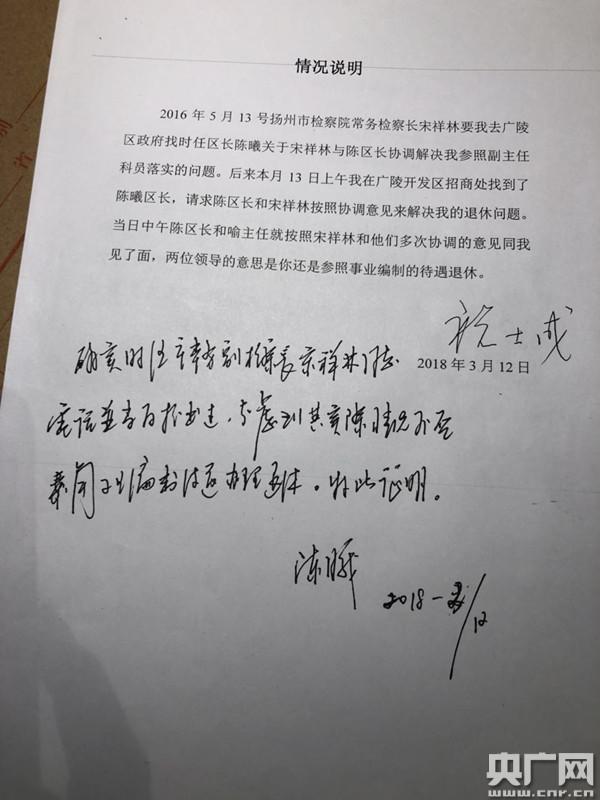 情况说明
2016 年 5 月 13 号扬州市检察院常务检察长宋祥林要我去广陵
区政府找时任区长陈曦关于宋祥林与陈区长协调解决我参照副主任
科员落实的问题。后来本月 13 日上午我在广陵开发区招商处找到了
陈曦区长，请求陈区长和宋祥林按照协调意见来解决我的退休问题。
当日中午陈区长和喻主任就按照宋祥林和他们多次协调的意见同我
见了面，两位领导的意思是你还是参照事业编制的待遇退休。
2018 年 3 月 12 日
确实时任常务副检察长宋祥林同志
电话 考虑到其实际情况
办理退休。特此证明。
陈曦
2018-3/12
央广网
www.cnr.cn